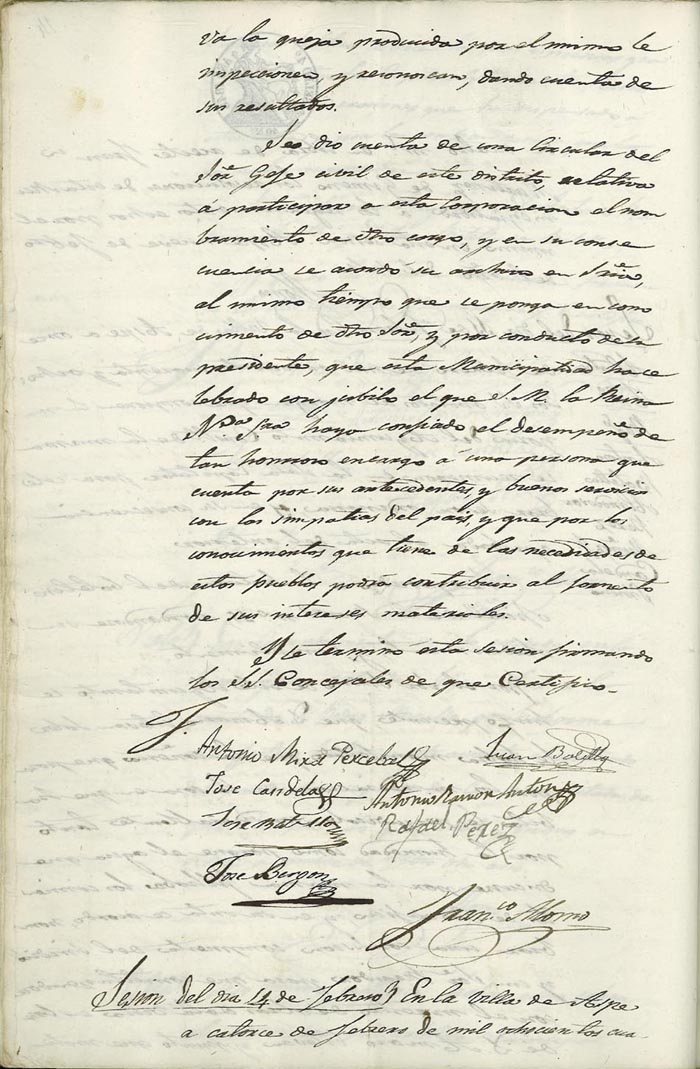 va la queja producida por el mimo le
inpeccionen, y reconoscan, dando cuenta de
sus resultados.
Seo dio cuenta de una Circular del
Sor. Gefe civil de este distrito, relativa
á participar a esta Corporacion el nom
bramiento de dho cargo, y en su conse
cuencia se acordó su archivo en Sria,
al mimo tiempo que se ponga en cono
cimiento de dho Sor, y por conducto de su
presidente, que esta Municipalidad ha ce
lebrado con jubilo el que S. M. la Reina
Nra Sra haya confiado el desempeño de
tan honroso encargo á una persona que
cuenta por sus antecedentes, y buenos servicios
con las simpatias del pais, y que por los
conocimientos que tiene de las necedidades de
estos pueblos podrá contribuir al fomento
de sus intereses materiales.
Y se terminó esta sesion firmando
los SS. Concejales de que Certifico.
Antonio Mira Percebal
Juan
Jose Candela
Antonio Ramon Anton
Jose
Rafael Perez
Jose
Franco. Alorno
Sesion del dia 14 de Febrero} En la villa de Aspe
a catorce de Febrero de mil ochocientos cua-